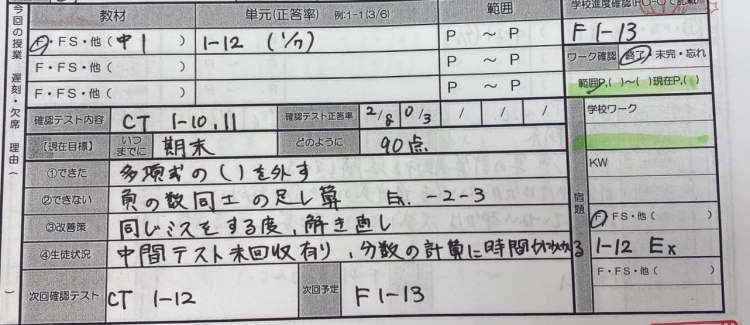 教材 単元(正答率) 例:1-1(3/6) 範囲
今回の授業 遅刻・欠席 理由( )
Ⓕ・FS・他(中1 ) 1-12 (1/7) P ~ P
F・FS・他( ) P ~ P
F・FS・他( ) P ~ P
F 1-13
ワーク確認 終了・未完・忘れ
範囲P.( )~( )現在P.( )
確認テスト内容 CT 1-10,11 確認テスト正答率 2/8 0/3 / / /
【現在目標】 いつまでに 期末 どのように 90点
①できた 多項式の( )を外す
②できない 負の数同士の足し算 Ex. -2-3
③改善策 同じミスをする度、解き直し
④生徒状況 中間テスト未回収有り、分数の計算に時間がかかる
次回確認テスト CT 1-12 次回予定 F 1-13
宿題
学校ワーク
KW
Ⓕ・FS・他( )
1-12 Ex
F・FS・他( )